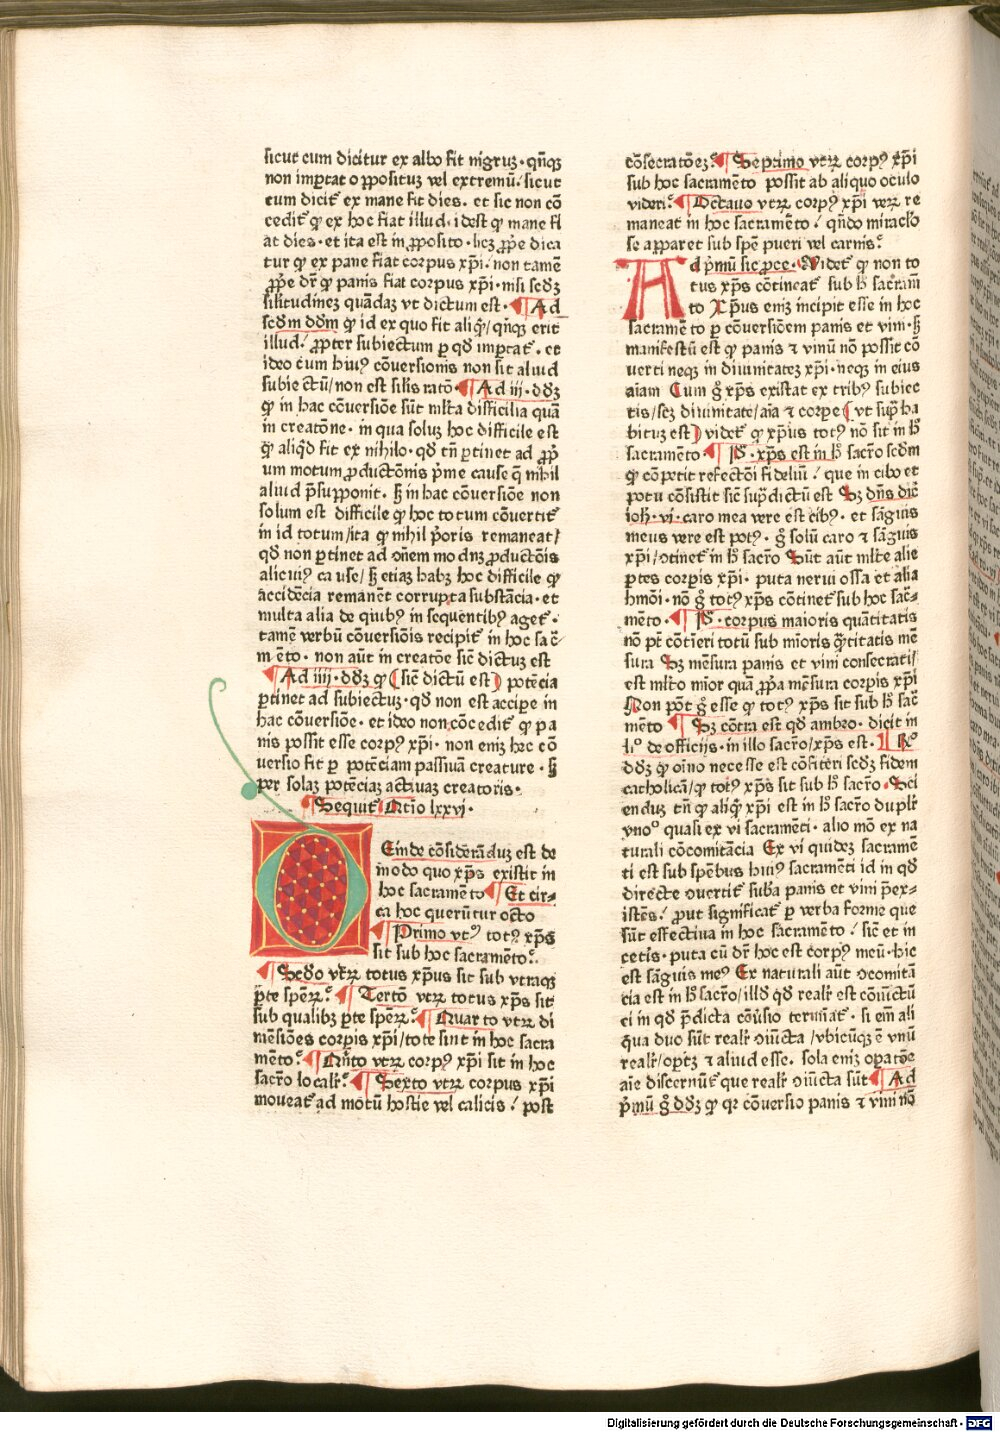 sicut cum dicitur ex albo fit nigruꝫ · qn̄qꝫ
non īmꝑtat oꝓpositus vel extremū. sicut
cum dicit᷑ ex mane fit dies. et sic non cō
cedit᷑ ꝙ ex hoc fiat illud. idest ꝙ mane fi
at dies · et ita est in ꝓposito · licꝫ ꝓpe dica
tur ꝙ ex pane fiat corpus xp̄i · non tamē
ꝓpe dr̄ ꝙ panis fiat corpus xp̄i · nisi scdꝫ
silitudineꝫ quādaꝫ vt dictum est · Ad
scd̄m dd̄m ꝙ id ex quo fit aliqd̓ / qn̄qꝫ erit
illud. ꝓpter subiectum ꝑ qd̄ imꝑtat᷑ . et
ideo cum huiꝰ cōversionis non sit aliud
subiectū / non est silis ratō · Ad iij · ddꝫ
ꝙ in hac cōversiōe sūt ml̄ta difficilia quā
in creatōne · in qua soluꝫ hoc difficile est
ꝙ aliqd̓ fit ex nihilo · qd̄ tn̄ ꝑtinet ad ꝓp̓
um motum ꝓductōnis p̓me cause q̄ nihil
aliud p̄supponit · sꝫ in hac cōversiōe non
solum est difficile ꝙ hoc totum cōvertit᷑
in id totum / ita ꝙ nihil p̓oris remaneat /
qd̄ non ꝑtinet ad oīem modnꝫ ꝓductōis
alicuiꝰ cause / sꝫ etiaꝫ habꝫ hoc difficile ꝙ
accidēcia remanēt corrupta substācia · et
multa alia de quibꝰ in sequentibꝰ aget᷑ ·
tamē verbū cōversiōis recipit᷑ in hoc sac̄
mēto · non aūt in creatōe sic̄ dictuꝫ est
Ad iiij · ddꝫ ꝙ ( sic̄ dictū est ) potēcia
ꝑtinet ad subiectuꝫ · qd̄ non est accipe in
hac cōversiōe · et ideo non cōcedit᷑ ꝙ pa
nis possit esse corpꝰ xp̄i · non eniꝫ hec cō
versio fit ꝑ potēciam passivā creature · sꝫ
per solaꝫ potēciaꝫ activaꝫ creatoris ·
Sequit᷑ Qtio lxxvi ·
Deinde cōsiderāduꝫ est de
modo quo xp̄s existit in
hoc sacramēto Et cir-
ca hoc querūtur octo
Primo vtꝝ totꝰ xp̄s
sit sub hoc sacramēto ·
Scd̄o vtꝝ totus xp̄us sit sub vtraqꝫ
ꝑte speꝝ. Tertō vtꝝ totus xp̄s sit
sub qualibꝫ ꝑte speꝝ. Quarto vtꝝ di
mēsiōes corꝑis xp̄i / tote sint in hoc sacra
mēto. Qn̄to vtꝝ corpꝰ xp̄i sit in hoc
sacr̄o localr̄. Sexto vtꝝ corpus xp̄i
moveat᷑ ad motū hostie vel calicis / post
cōsecratōeꝫ. Septimo vtꝝ corpꝰ xp̄i
sub hoc sacramēto possit ab aliquo oculo
videri. Octavo vtꝝ corpꝰ xp̄i veꝝ re
maneat in hoc sacramēto / qn̄do miraclo͛
se apparet sub spē pueri vel carnis.
Ad p̓mū sic ꝓce · Videt᷑ ꝙ non to
tus xp̄s cōtineat᷑ sub h̓ sacram̄
to Xp̄us eniꝫ incipit esse in hoc
sacramēto ꝑ cōversiōem panis et vini · sꝫ
manifestū est ꝙ panis ⁊ vinū nō possūt cō
verti neqꝫ in divinitateꝫ xp̄i · neqꝫ in eius
aīam Cum g̊ xp̄s existat ex tribꝰ subiec
tis / scꝫ divinitate / aīa ⁊ corpe ( vt sup̄ ha
bituꝫ est ) videt᷑ ꝙ xp̄us totꝰ nō sit in h̓
sacramēto · P̄ · xp̄s est in h̓ sacr̄o scd̄m
ꝙ cōpetit refectōi fideliū / que in cibo et
potu cōsistit sic̄ sup̄dictū est Sꝫ dn̄s dic̄
ioh̄ · vi · caro mea vere est cibꝰ · et sāguis
meus vere est potꝰ · g̊ solū caro ⁊ sāguis
xp̄i / ꝯtinet᷑ in h̓ sacr̄o Sūt aūt ml̄te alie
ꝑtes corꝑis xp̄i · puta nervi ossa et alia
hmōi · nō g̊ totꝰ xp̄s cōtinet᷑ sub hoc sac̄-
mēto · P̄ · corpus maioris quātitatis
nō pt̄ cōtineri totū sub mīoris q̄titatis mē
sura Sꝫ mēsura panis et vini consecrati /
est ml̄to mīor quā ꝓpa mēsura corꝑis xp̄i
Non pōt g̊ esse ꝙ totꝰ xp̄s sit sub h̓ sac̄
mēto Sꝫ cōtra est qd̄ ambro · dicit in
li̊ de officijs · in illo sacr̄o / xp̄s est · R̊
ddꝫ ꝙ oīno necesse est cōfiteri scdꝫ fidem
catholicā / ꝙ totꝰ xp̄s sit sub h̓ sacr̄o · Sci
enduꝫ tn̄ ꝙ aliqd̓ xp̄i est in h̓ sacr̄o duplr̄
vno̊ quasi ex vi sacramēti · alio mō ex na
turali cōcomitācia Ex vi quideꝫ sacramē
ti est sub spēbus huiꝰ sacramēti id in qd̄
directe ꝯvertit᷑ suba panis et vini p̄ex-
istēs / ꝓut significat᷑ ꝑ verba forme que
sūt effectiva in hoc sacramēto / sic̄ et in
cetis · puta cū dr̄ hoc est corpꝰ meū · hic
est sāguis meꝰ Ex naturali aūt ꝯcomitā
cia est in h̓ sacr̄o / illd̓ qd̄ realr̄ est cōiūctū
ei in qd̄ p̄dicta cōv̓sio termīat᷑ · si em̄ ali
qua duo sūt realr̄ ꝯiūcta / vbicūqꝫ ē vnū
realr̄ / oꝑtꝫ ⁊ aliud esse. sola eniꝫ oꝑatōe
aīe discernūt᷑ que realr̄ ꝯiūcta sūt Ad
p̓mū g̊ ddꝫ ꝙ qr cōversio panis ⁊ vini nō
Digitalisierung gefördert durch die Deutsche Forschungsgemeinschaft - DFG